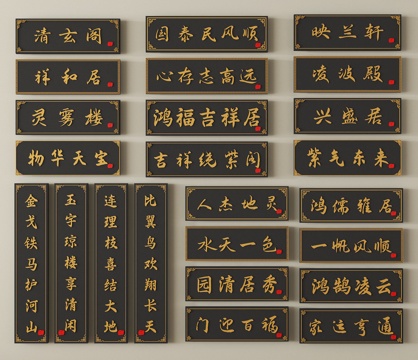 清玄阁
国泰民风顺
映兰轩
祥和居
心存志高远
凌波殿
灵雾楼
鸿福吉祥居
兴盛居
物华天宝
吉祥绕紫阁
紫气东来
金戈铁马护河山
玉宇琼楼享清闲
连理枝喜结大地
比翼鸟欢翔长天
人杰地灵
鸿儒雅居
水天一色
一帆风顺
园清居秀
鸿鹄凌云
门迎百福
家运亨通